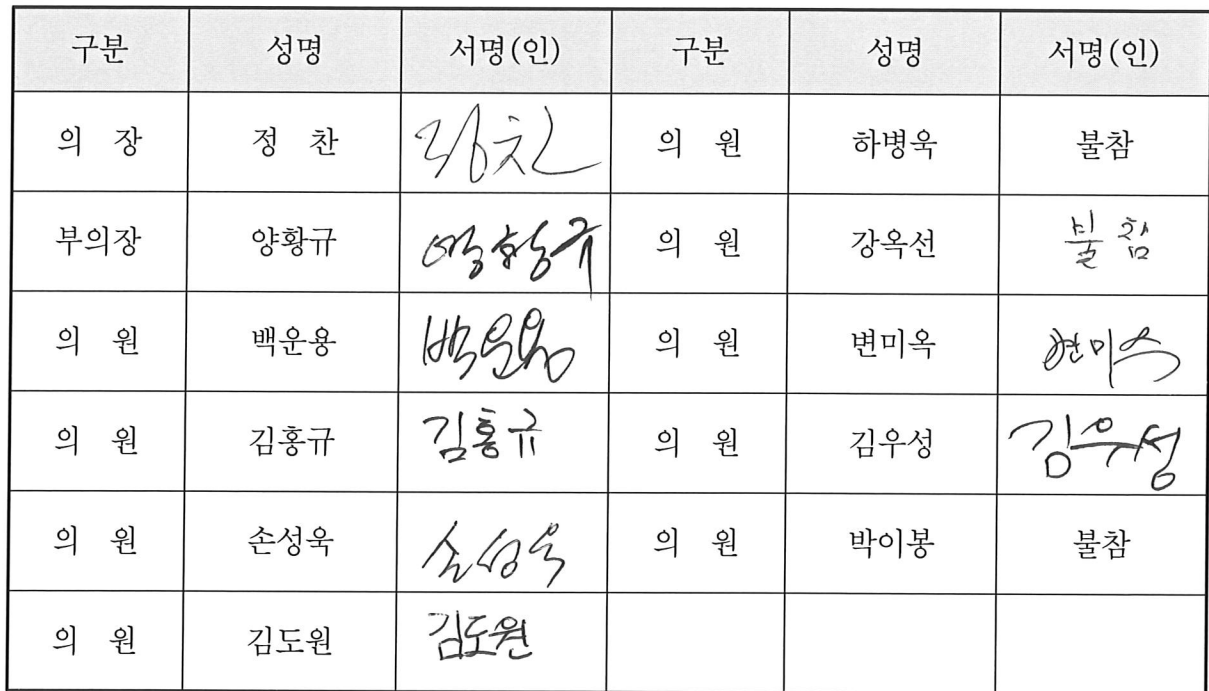 구분 성명 서명(인) 구분 성명 서명(인)
의 장 정 찬 정찬 의 원 하병욱 불참
부의장 양황규 양황규 의 원 강옥선 불참
의 원 백운용 백운용 의 원 변미옥 변미옥
의 원 김홍규 김홍규 의 원 김우성 김우성
의 원 손성욱 손성욱 의 원 박이봉 불참
의 원 김도원 김도원